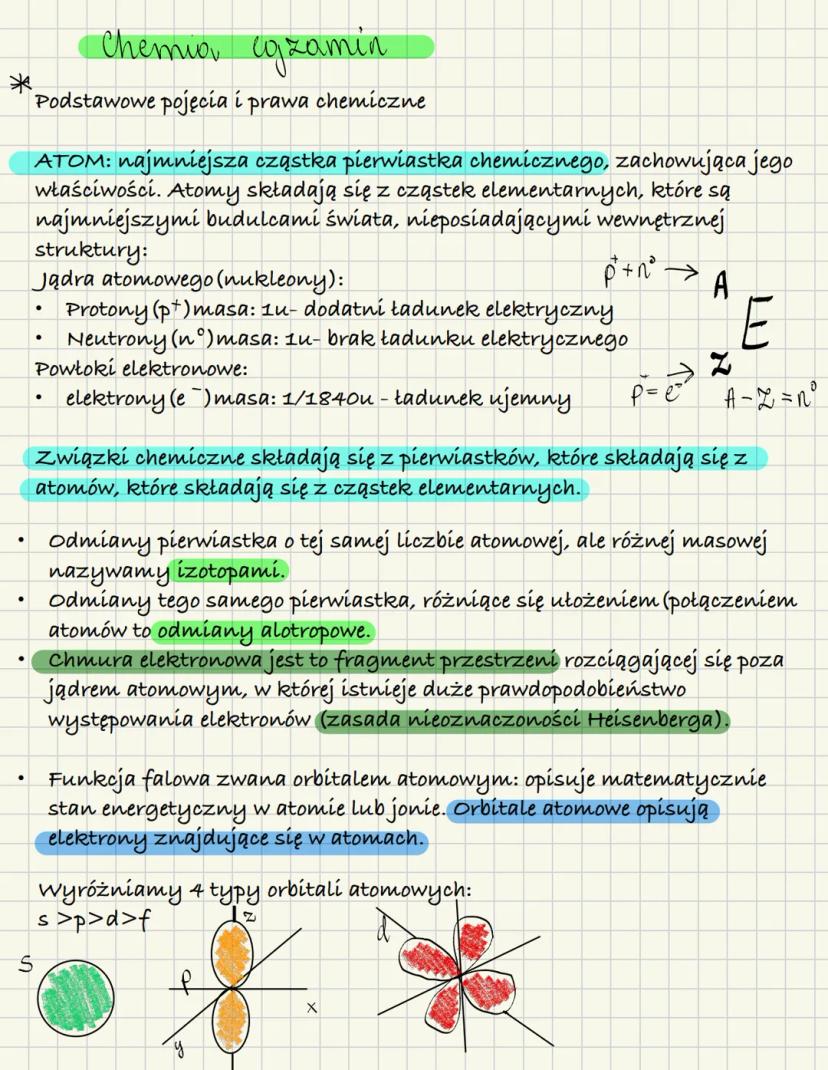 Chemia egzamin
* Podstawowe pojęcia i prawa chemiczne
ATOM: najmniejsza cząstka pierwiastka chemicznego, zachowująca jego
właściwości. Atomy składają się z cząstek elementarnych, które są
najmniejszymi budulcami świata, nieposiadającymi wewnętrznej
struktury:
Jądra atomowego (nukleony):
• Protony (p⁺) masa: 1u- dodatni ładunek elektryczny
• Neutrony (n°) masa: 1u- brak ładunku elektrycznego
Powłoki elektronowe:
• elektrony (e⁻) masa: 1/1840u - ładunek ujemny
p⁺+n° → A
E
p⁻=e⁻ → Z
A-Z=n°
Związki chemiczne składają się z pierwiastków, które składają się z
atomów, które składają się z cząstek elementarnych.
• Odmiany pierwiastka o tej samej liczbie atomowej, ale różnej masowej
nazywamy izotopami.
• Odmiany tego samego pierwiastka, różniące się ułożeniem (połączeniem
atomów to odmiany alotropowe.
• Chmura elektronowa jest to fragment przestrzeni rozciągającej się poza
jądrem atomowym, w której istnieje duże prawdopodobieństwo
występowania elektronów (zasada nieoznaczoności Heisenberga).
• Funkcja falowa zwana orbitalem atomowym: opisuje matematycznie
stan energetyczny w atomie lub jonie. Orbitale atomowe opisują
elektrony znajdujące się w atomach.
Wyróżniamy 4 typy orbitali atomowych:
s >p>d>f
s
p
z
x
y
d